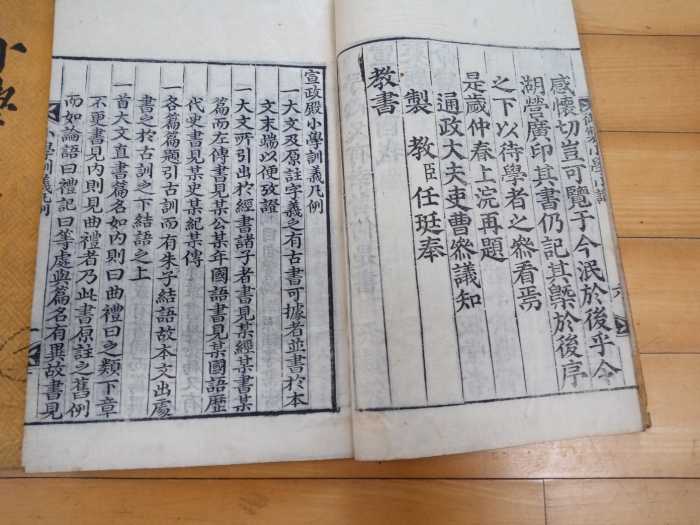 感懷切豈可覽于今泯於後乎今
湖營廣印其書仍記其槩於後序
之下以待學者之叅看焉
是歲仲春上浣再題
通政大夫吏曹叅議知
製 教臣任珽奉
教書
宣政殿小學訓義凡例
一大文及原註字義之有古書可據者並書於本
文末端以便攷證
一大文所引出於經書諸子者書見某經某書某
篇而左傳書見某公某年國語書見某國語歷
代史書見某史某紀某傳
一各篇篇題引古訓而有朱子結語故本文出處
書之於古訓之下結語之上
一首大文直書篇名如內則曰曲禮曰之類下章
不更書見內則見曲禮者乃此書原註之舊例
而如論語曰禮記曰等處與篇名有異故書見
小學訓義凡例